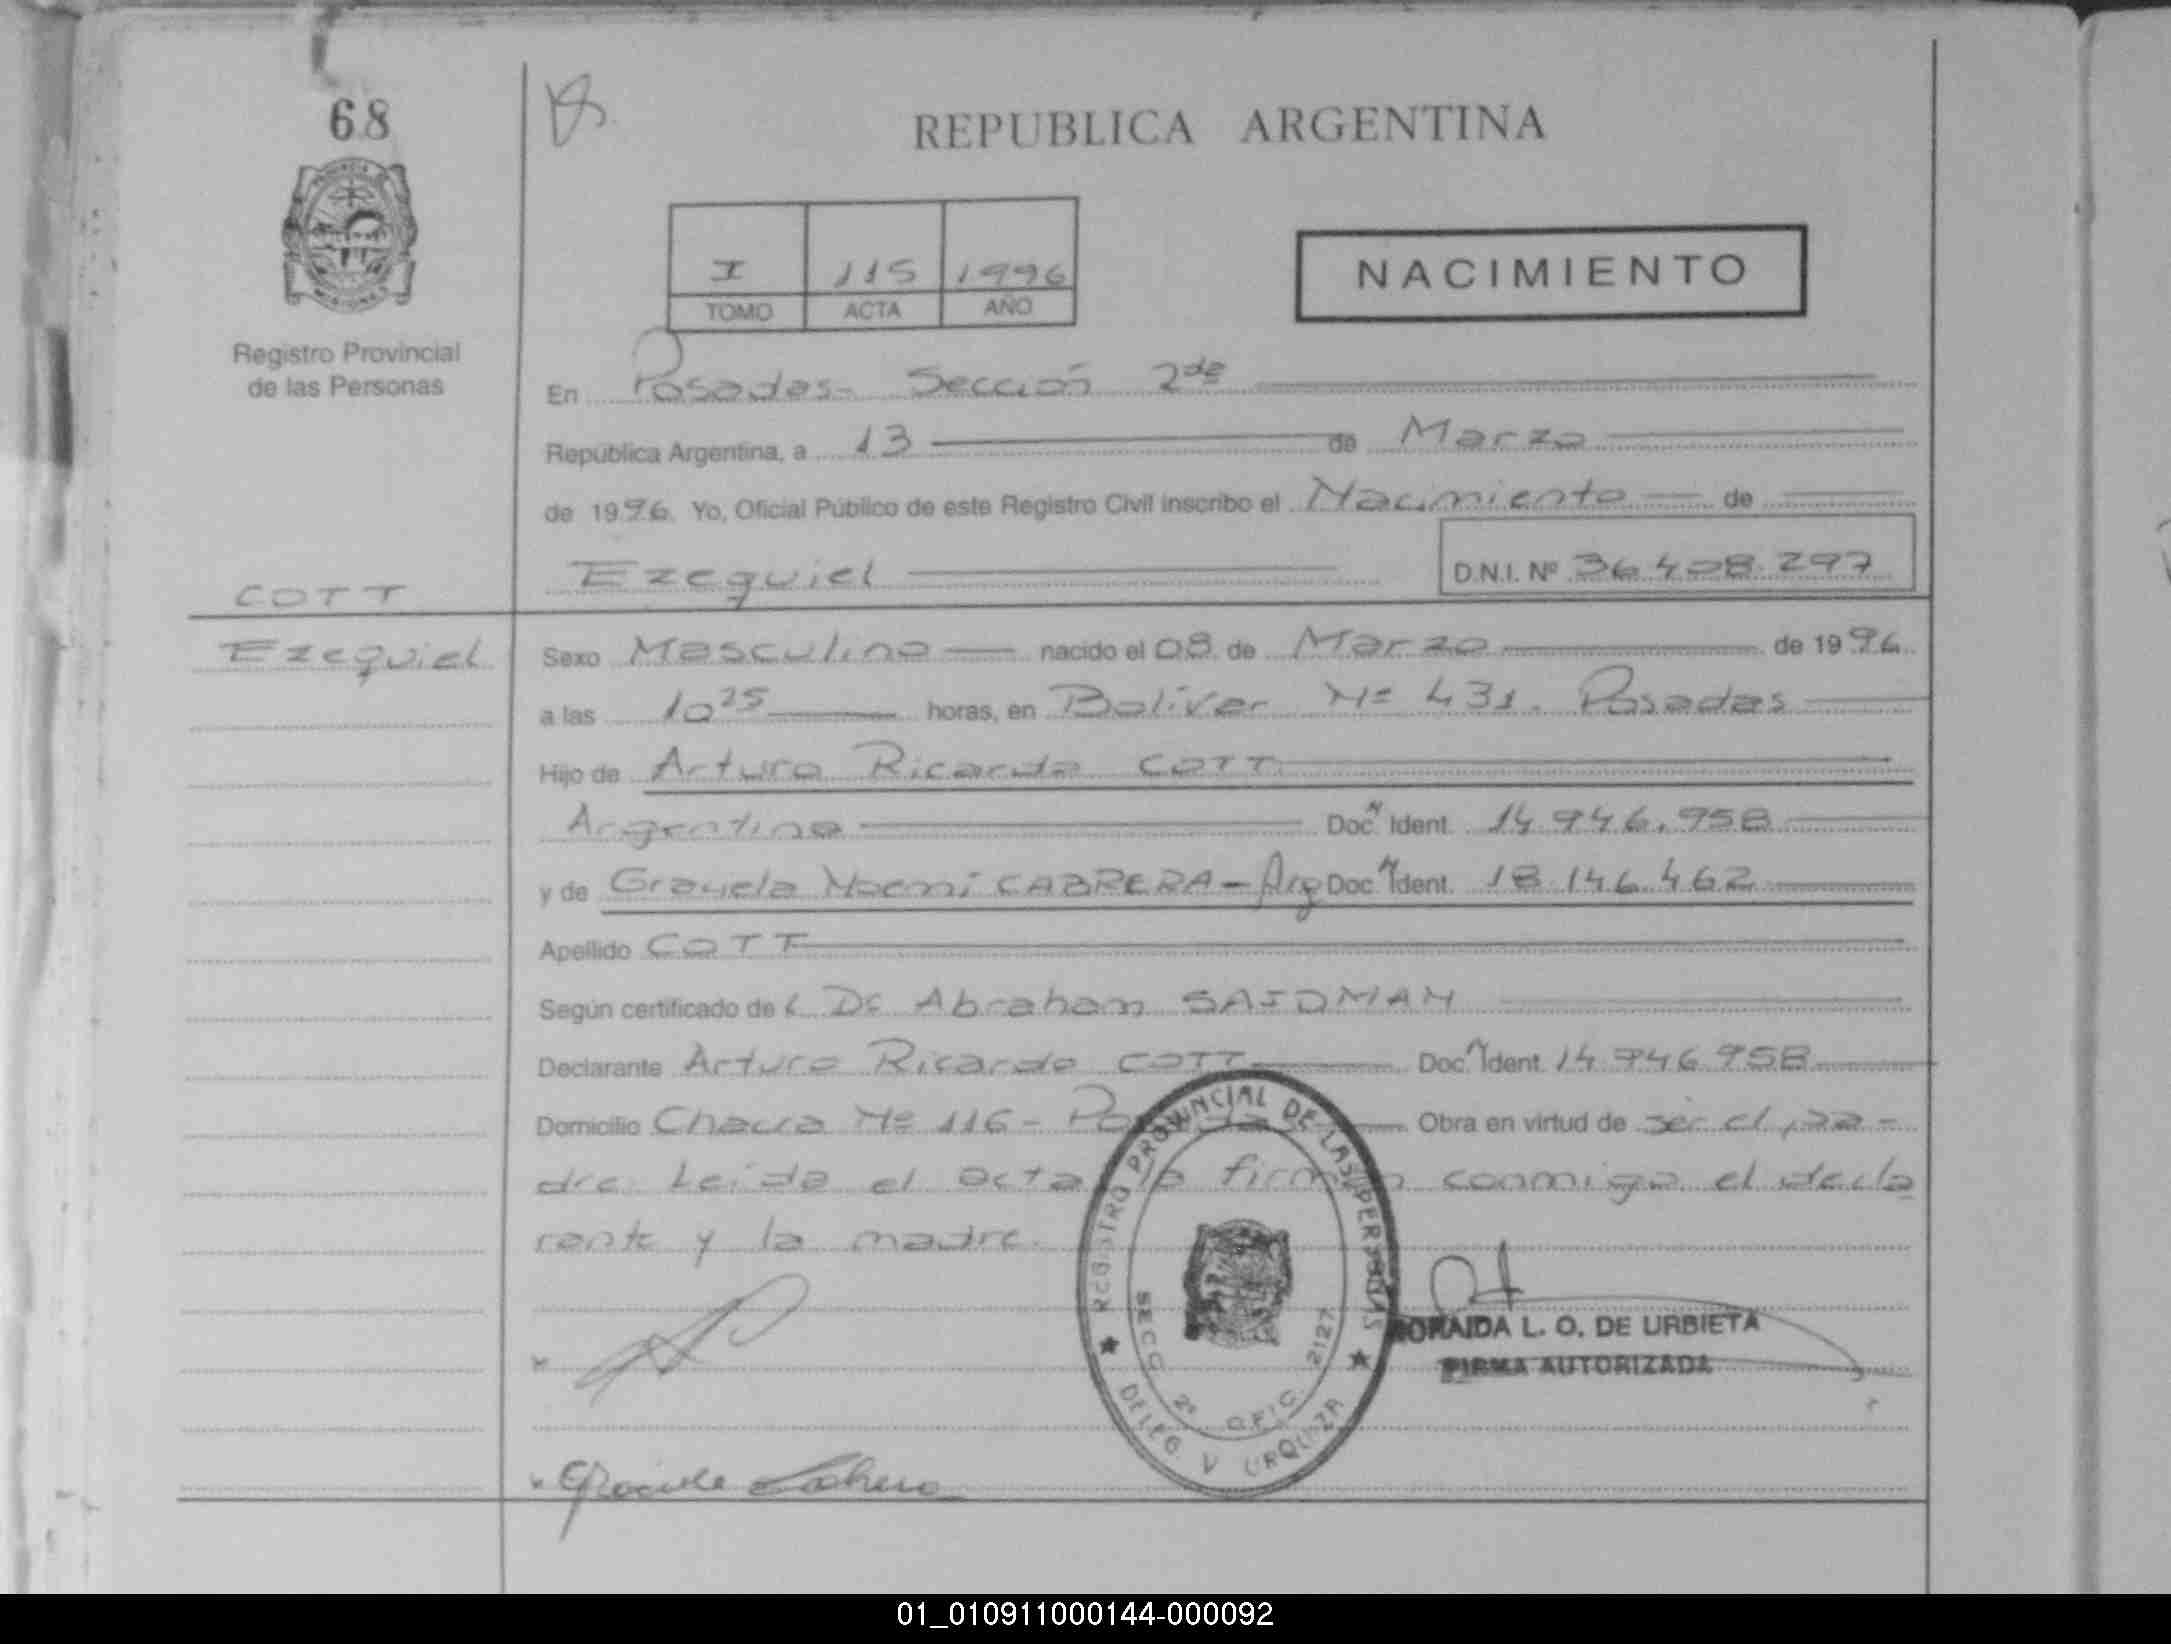 68
REPUBLICA ARGENTINA
I 115 1996
TOMO ACTA AÑO
NACIMIENTO
Registro Provincial
de las Personas
En Posadas- Sección 2da
República Argentina, a 13 de Marzo
de 1996. Yo, Oficial Público de este Registro Civil inscribo el Nacimiento de
Ezequiel D.N.I. Nº 36.408.297
COTT
Ezequiel
Sexo Masculino nacido el 08 de Marzo de 1996
a las 10 25 horas, en Bolívar Nº 431. Posadas
Hijo de Arturo Ricardo COTT
Argentino Doc. N Ident. 14.946.958
y de Graciela Noemí CABRERA - Arg Doc. N Ident. 18.146.462
Apellido COTT
Según certificado de l Dr Abraham SAIDMAN
Declarante Arturo Ricardo COTT Doc. N Ident. 14.946.958
Domicilio Chacra Nº 116 - Posadas Obra en virtud de ser el pa-
dre. Leída el acta la firman conmigo el decla
rante y la madre.
REGISTRO PROVINCIAL DE LAS PERSONAS
SECC. 2ª OFIC. 2127
DELEG. V URQUIZA
ZORAIDA L. O. DE URBIETA
FIRMA AUTORIZADA
Graciela Cabrera
01_010911000144-000092